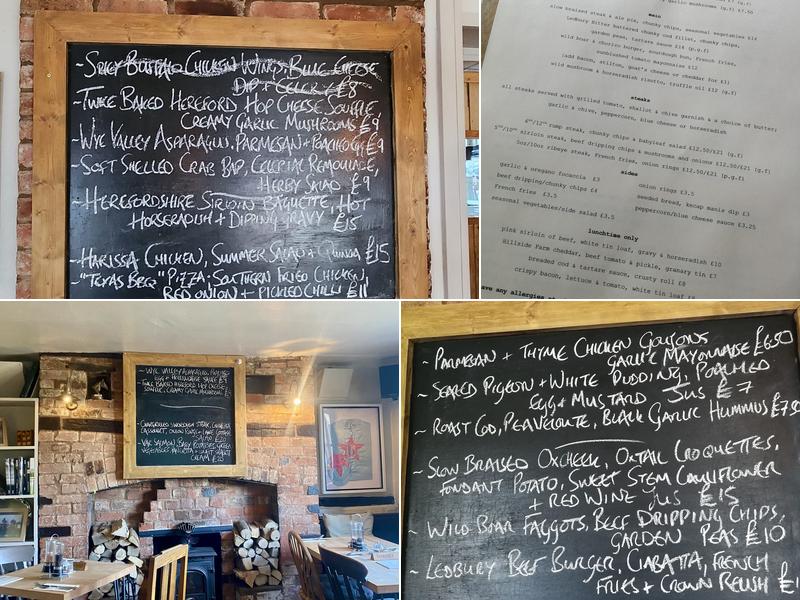 ~ SPICY BUFFALO CHICKEN WINGS, BLUE CHEESE
DIP + CELERY £8
~ TWICE BAKED HEREFORD HOP CHEESE SOUFFLE,
CREAMY GARLIC MUSHROOMS £9
~ WYE VALLEY ASPARAGUS, PARMESAN + POACHED EGG £9
~ SOFT SHELLED CRAB BAP, CELERIAC REMOULADE,
HERBY SALAD £9
~ HEREFORDSHIRE SIRLOIN BAGUETTE, HOT
HORSERADISH + DIPPING GRAVY £15
~ HARISSA CHICKEN, SUMMER SALAD + QUINOA £15
~ "TEXAS BBQ" PIZZA; SOUTHERN FRIED CHICKEN,
RED ONION + PICKLED CHILLI £11
garlic mushrooms (g.f) £7.50
main
slow braised steak & ale pie, chunky chips, seasonal vegetables £14
Ledbury Bitter battered chunky cod fillet, chunky chips,
garden peas, tartare sauce £14 (p.g.f)
wild boar & chorizo burger, sourdough bun, french fries,
sunblushed tomato mayonnaise £12
(add bacon, stilton, goat's cheese or cheddar for £1)
wild mushroom & horseradish risotto, truffle oil £12 (g.f)
steaks
all steaks served with grilled tomato, shallot & chive garnish & a choice of butter;
garlic & chive, peppercorn, blue cheese or horseradish
6oz/12oz rump steak, chunky chips & babyleaf salad £12.50/£21 (g.f)
5oz/10oz sirloin steak, beef dripping chips & mushrooms and onions £12.50/£21 (g.f)
5oz/10oz ribeye steak, French fries, onion rings £12.50/£21 (p.g.f)
sides
garlic & oregano focaccia £3
onion rings £3.5
beef dripping/chunky chips £4
seeded bread, kecap manis dip £3
French fries £3.5
peppercorn/blue cheese sauce £3.25
seasonal vegetables/side salad £3.5
lunchtime only
pink sirloin of beef, white tin loaf, gravy & horseradish £10
Hillside Farm cheddar, beef tomato & pickle, granary tin £7
breaded cod & tartare sauce, crusty roll £8
crispy bacon, lettuce & tomato, white tin loaf
have any allergies
~ WYE VALLEY ASPARAGUS, POACHED
EGG + HOLLANDAISE SAUCE £9
~ TWICE BAKED HEREFORD HOP CHEESE
SOUFFLE, CREAMY GARLIC MUSHROOMS
~ CHARGRILLED SWORDFISH STEAK, CHORIZO
~ WYE SALMON, BABY POTATOES, GREEN
VEGETABLES, PANCETTA
CREAM £20
~ PARMESAN + THYME CHICKEN GOUJONS
GARLIC MAYONNAISE £6.50
~ SEARED PIGEON + WHITE PUDDING, POACHED
EGG + MUSTARD JUS £7
~ ROAST COD, PEA VELOUTE, BLACK GARLIC HUMMUS £7.50
~ SLOW BRAISED OXCHEEK, OXTAIL CROQUETTES,
FONDANT POTATO, SWEET STEM CAULIFLOWER
+ RED WINE JUS £15
~ WILD BOAR FAGGOTS, BEEF DRIPPING CHIPS,
GARDEN PEAS £10
~ LEDBURY BEEF BURGER, CIABATTA, FRENCH
FRIES + CROWN RELISH £1